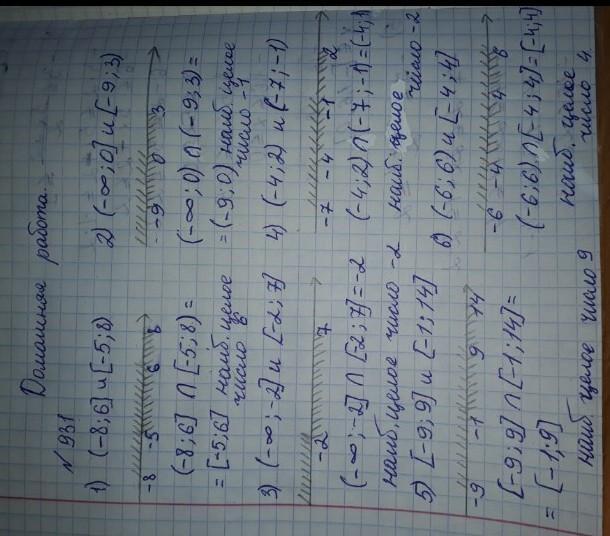 Домашняя работа.
№ 931
1) (-8; 6] и [-5; 8)
-8 -5 6 8
(-8; 6] ∩ [-5; 8) =
= [-5; 6] наиб. целое
число 6
2) (-∞; 0] и [-9; 3)
-9 0 3
(-∞; 0) ∩ (-9; 3) =
= (-9; 0) наиб. целое
число -1
3) (-∞; -2] и [-2; 7]
-2 7
(-∞; -2] ∩ [-2; 7] = -2
наиб. целое число -2
4) (-4; 2) и (-7; -1)
-7 -4 -1 2
(-4; 2) ∩ (-7; -1) = (-4; 1)
наиб. целое
число -2
5) [-9; 9] и [-1; 14]
-9 -1 9 14
[-9; 9] ∩ [-1; 14] =
= [-1; 9]
наиб целое число 9
6) (-6; 6) и [-4; 4]
-6 -4 4 6
(-6; 6) ∩ [-4; 4] = [-4; 4]
наиб. целое
число 4.